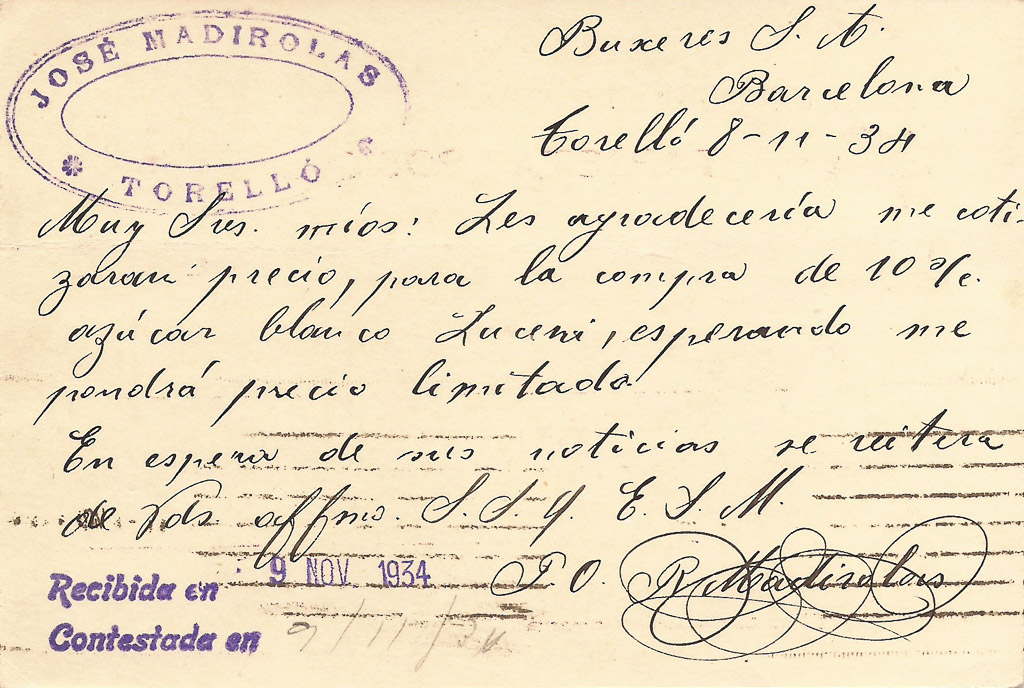 JOSÉ MADIROLAS
TORELLÓ
Buxeres S. A.
Barcelona
Torelló 8-11-34
Muy Sres. míos: Les agradecería me coti-
zaran precio, para la compra de 10 s/c.
azúcar blanco Luceni, esperando me
pondrá precio limitado
En espera de sus noticias se reitera
de Vds affmo. S. S. q. E. S. M.
P. O. R Madirolas
Recibida en 9 NOV 1934
Contestada en 9/11/34